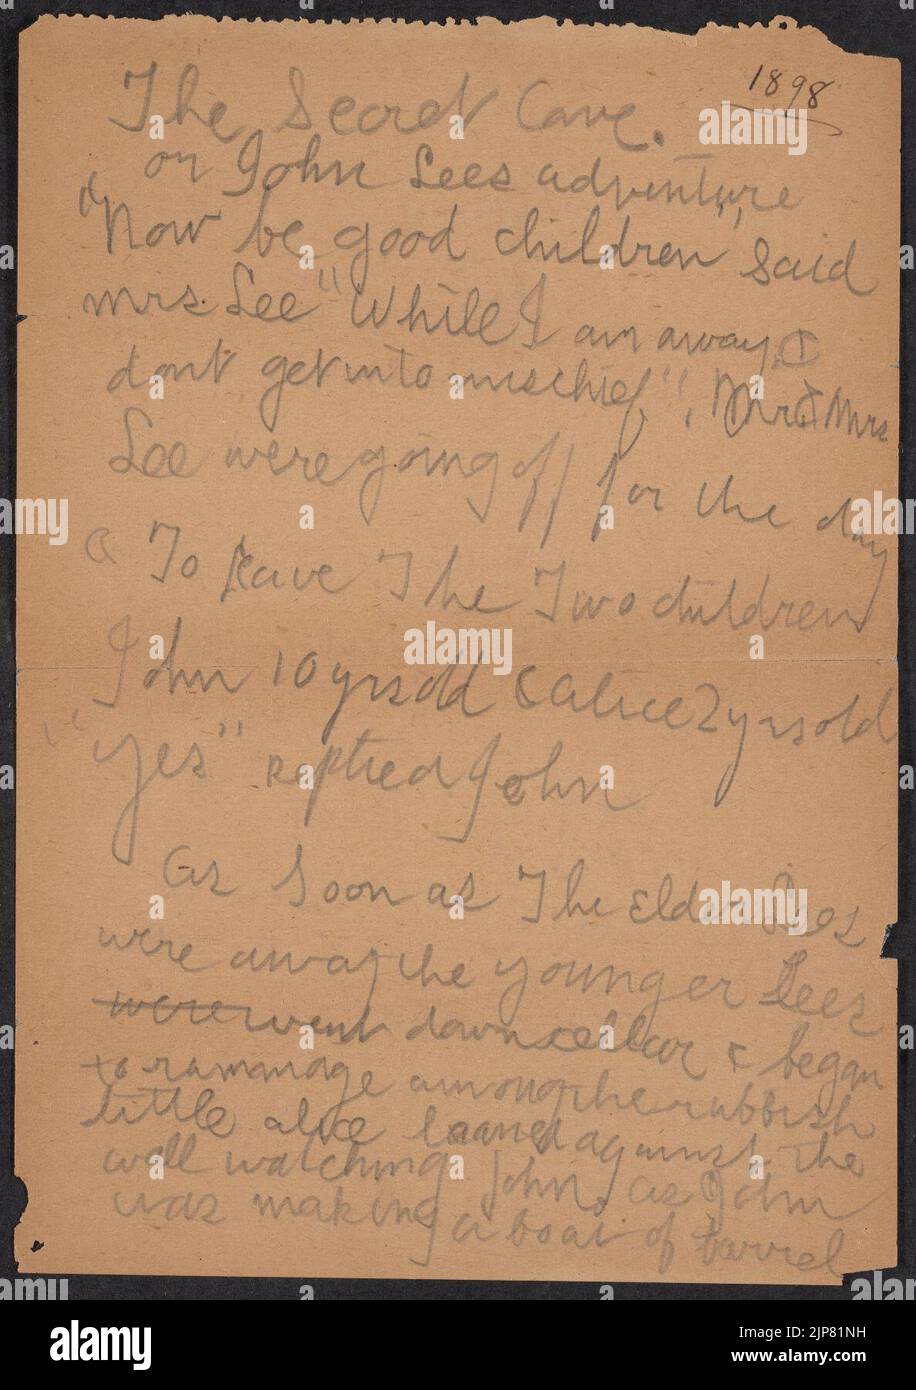 1898
The Secret Cave.
or John Lees adventure
"Now be good children", said
mrs. Lee "While I am away &
dont get into mischief", Mr & Mrs
Lee were going off for the day
& To leave The Two children
John 10 yrs old & Alice 2 yrs old
"yes" replied John
As Soon as The Elder Lees
were away the younger Lees
were went down cellar & began
to rummage among the rubbish
little alice leaned against the
wall watching John. as John
was making a boat of barrel
alamy
Image ID: 2JP81NH
www.alamy.com